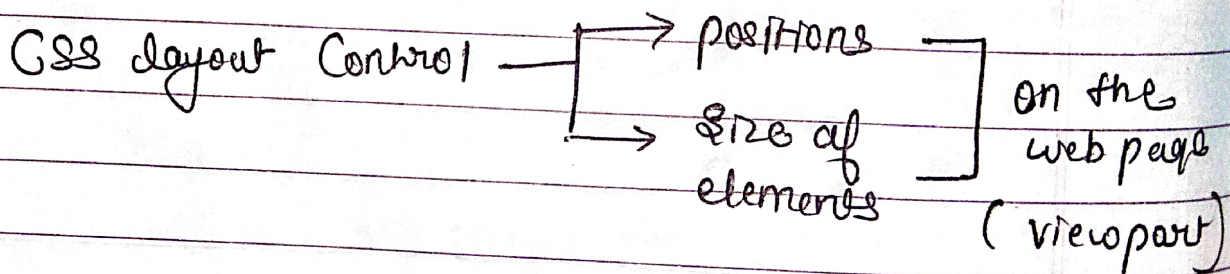 CSS layout Control → positions
→ Size of elements
on the
web page
(viewport)